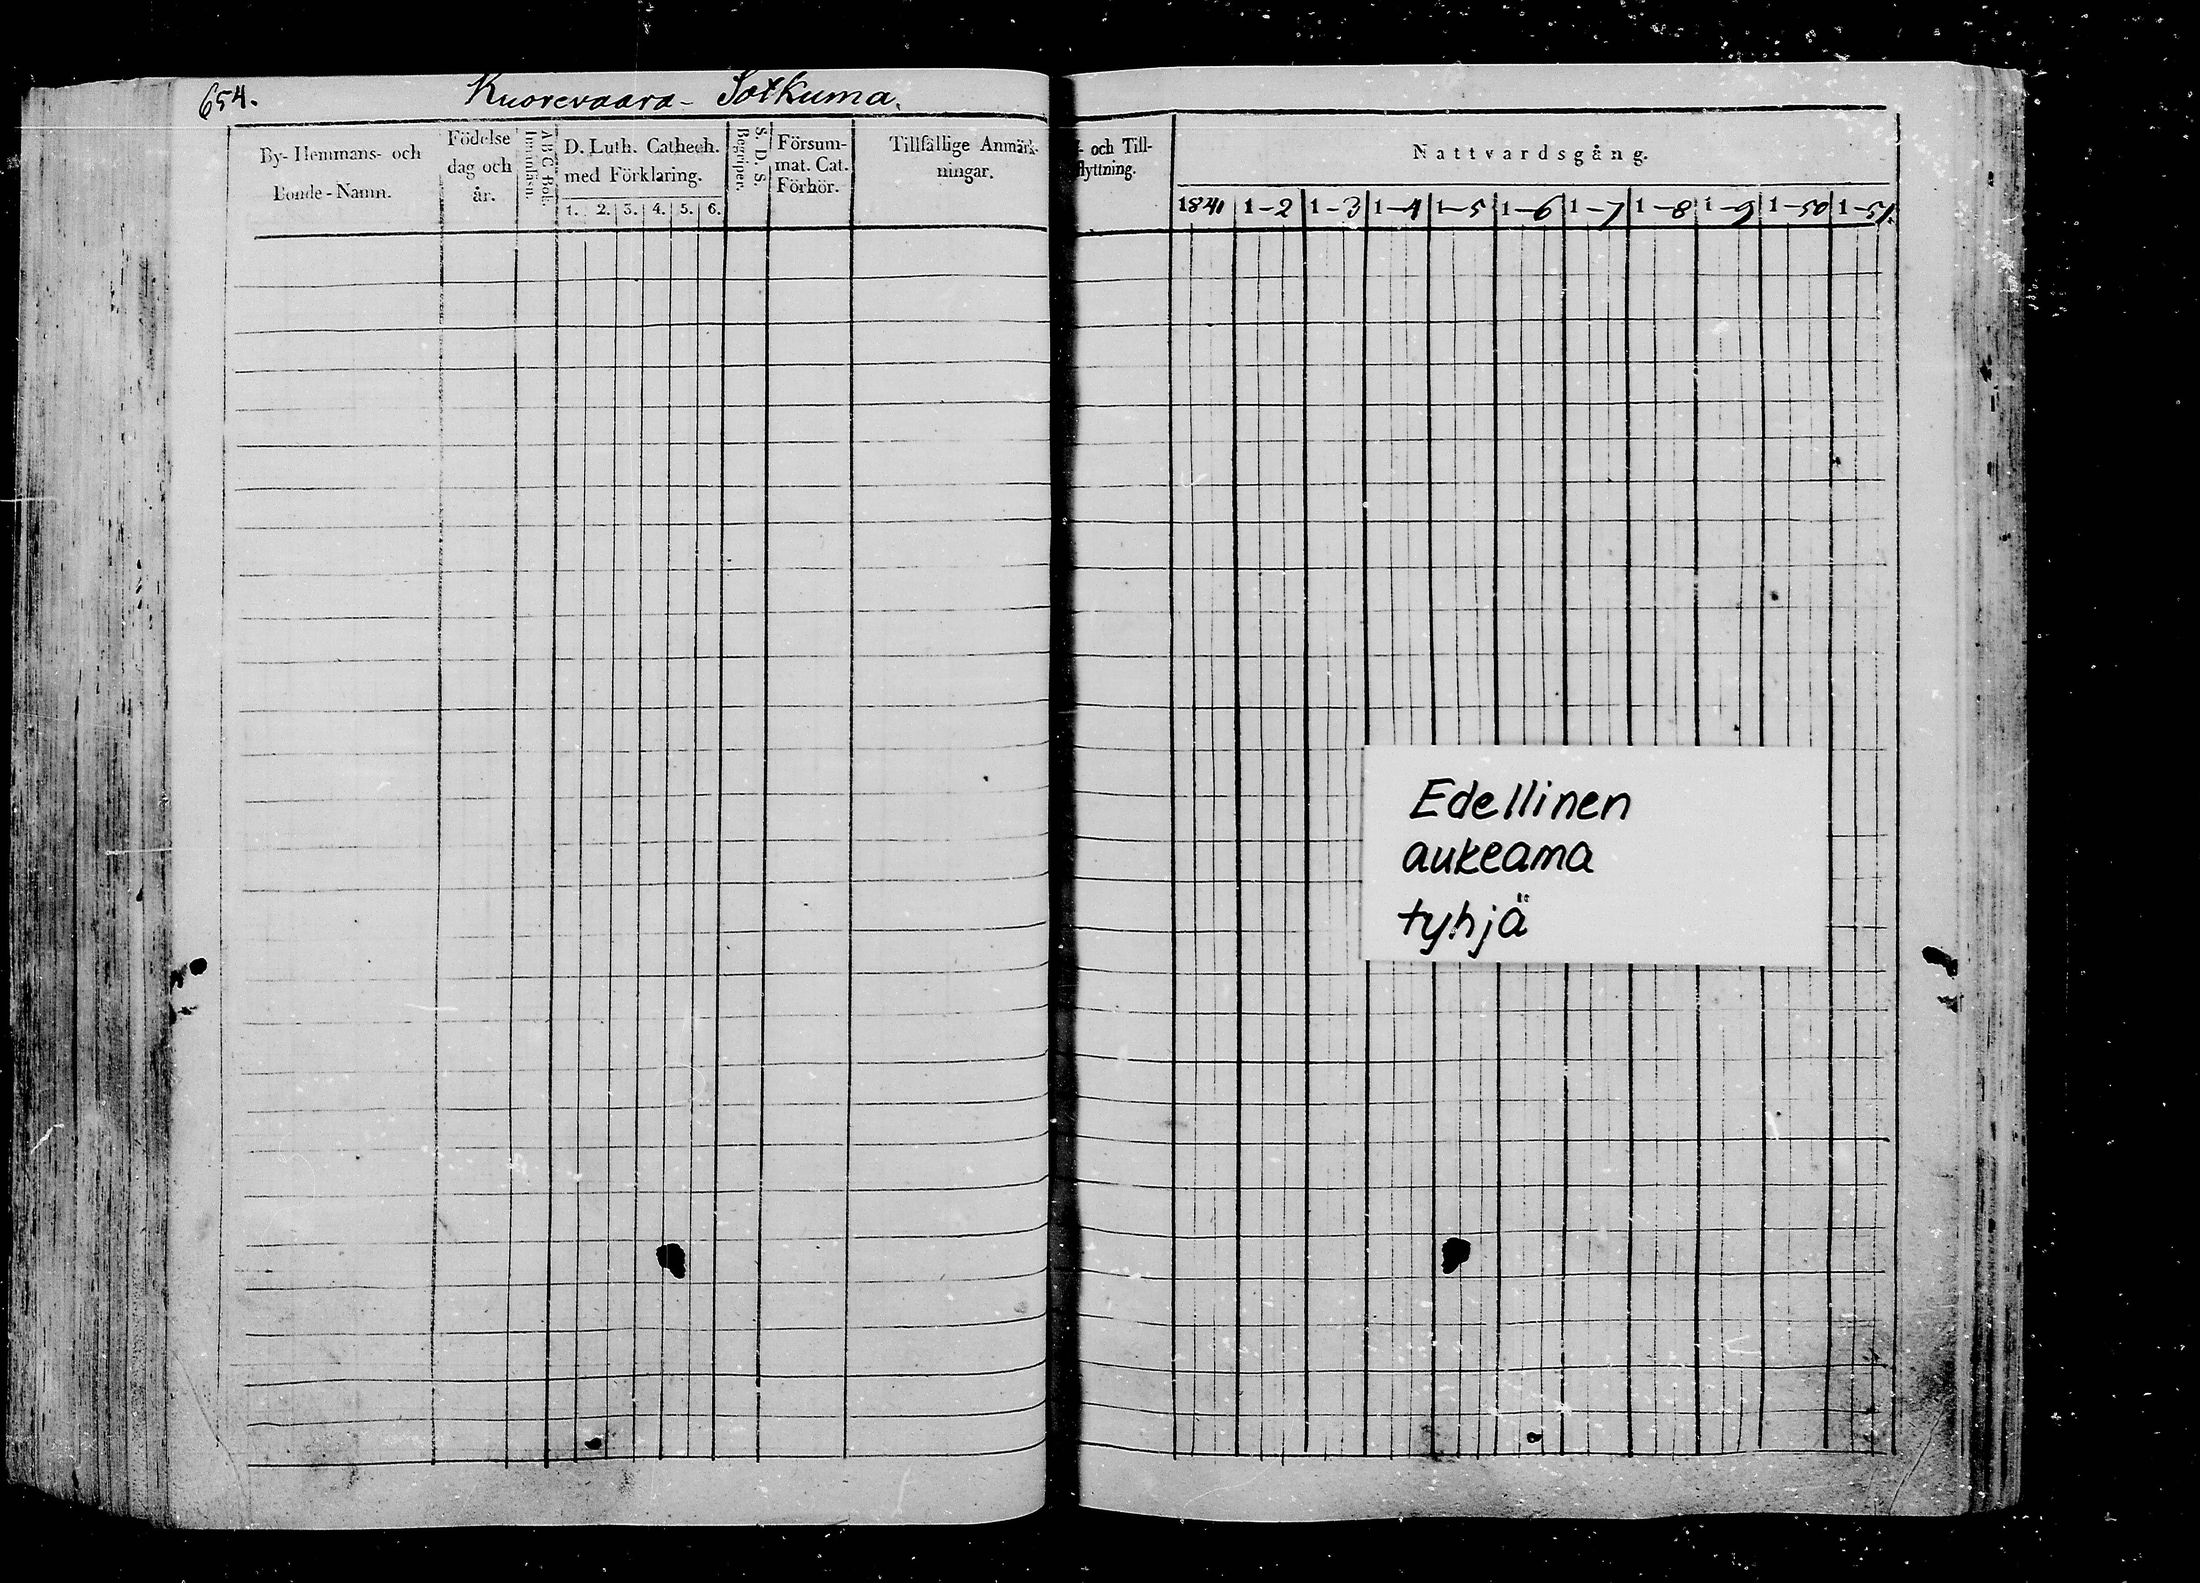 654. Kuorevaara - Sotkuma.
By- Hemmans- och
Bonde-Namn.
Födelse
dag och
år.
ABC Bok.
Innanläsn.
D. Luth. Cathech.
med Förklaring.
1. 2. 3. 4. 5. 6.
S. D. S.
Begriper.
Försum-
mat. Cat.
Förhör.
Tillfällige Anmärk-
ningar.
och Till-
flyttning.
Nattvardsgång.
1841 1-2 1-3 1-4 1-5 1-6 1-7 1-8 1-9 1-50 1-51.
Edellinen
aukeama
tyhjä